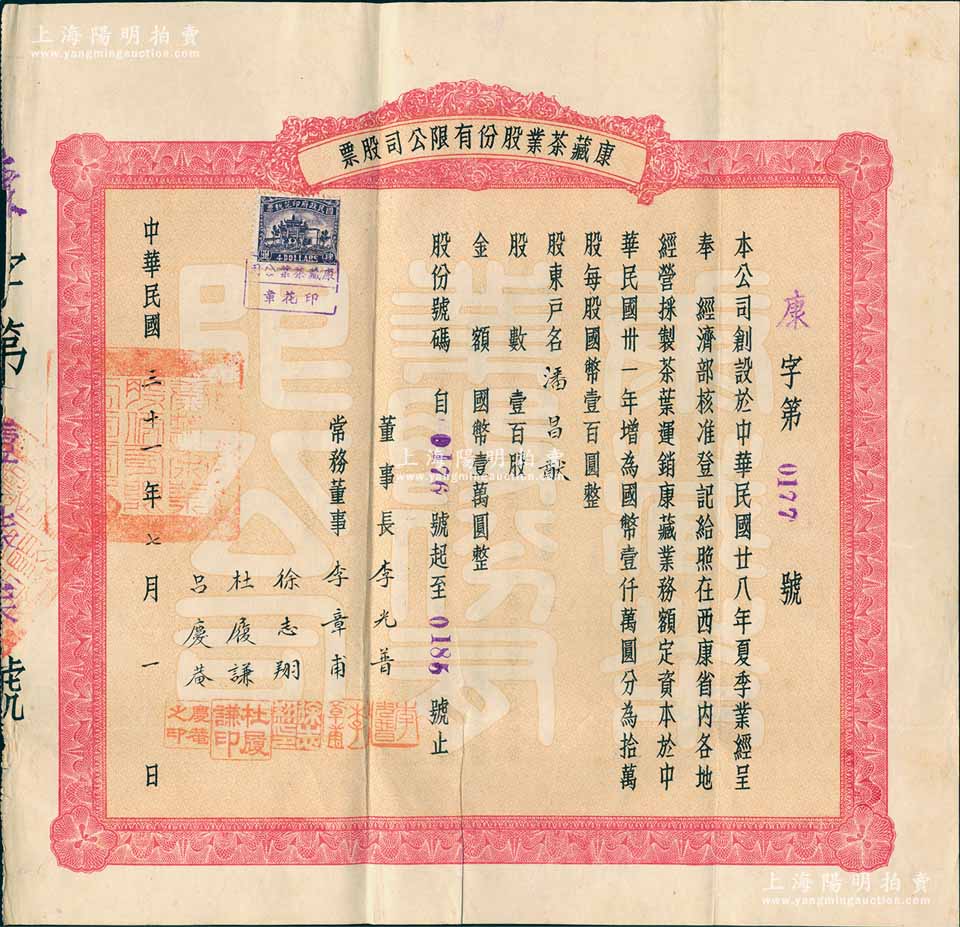 上海陽明拍賣
www.yangmingauction.com
上海陽明拍賣
www.yangmingauction.com
康藏茶業股份有限公司股票
康字第0177號
本公司創設於中華民國廿八年夏季業經呈
奉 經濟部核准登記給照在西康省内各地
經營採製茶葉運銷康藏業務額定資本於中
華民國卅一年增為國幣壹仟萬圓分為拾萬
股每股國幣壹百圓整
股東戶名 潘昌猷
股數 壹百股
金額 國幣壹萬圓整
股份號碼 自 0176 號起至 0185 號止
董事長 李光普
常務董事 李章甫
徐志翔
杜履謙
呂慶菴
中華民國三十一年七月一日
國民政府印花稅票
4 DOLLARS
康藏茶業公司
印花章
杜履謙印
慶菴之印
上海陽明拍賣
www.yangmingauction.com
上海陽明拍賣
www.yangmingauction.com